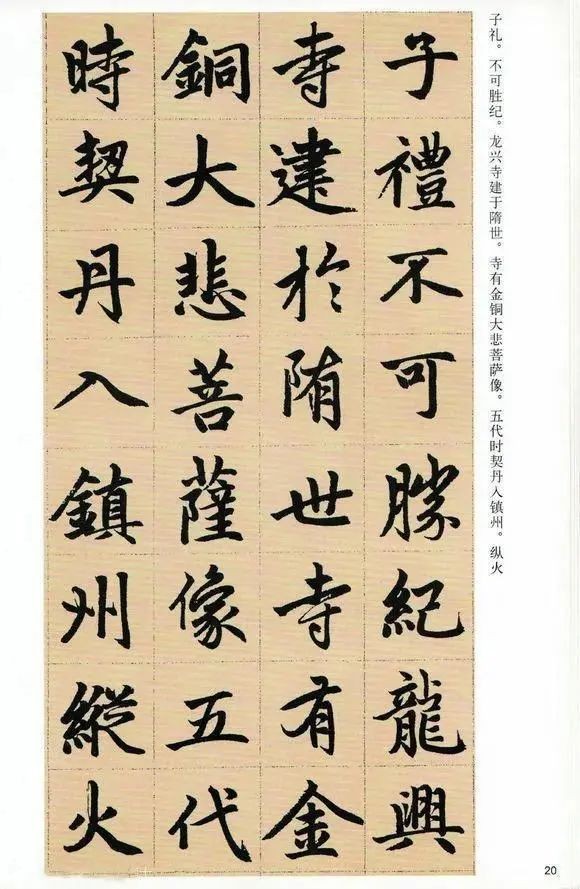 子礼。不可胜纪。龙兴寺建于隋世。寺有金铜大悲菩萨像。五代时契丹入镇州。纵火
子禮不可勝紀龍興
寺建於隋世寺有金
銅大悲菩薩像五代
時契丹入鎮州縱火
20